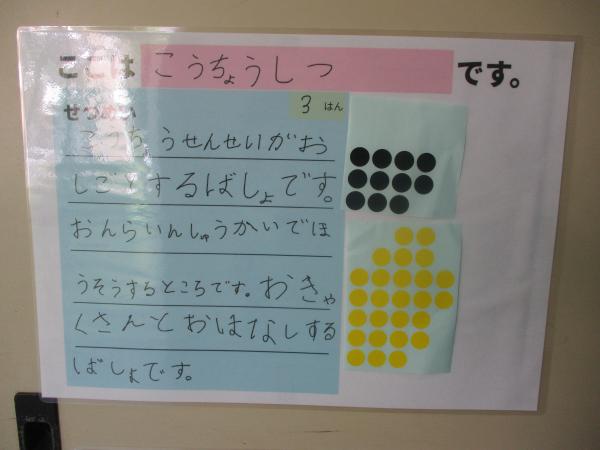 ここは こうちょうしつ です。
せつめい 3 はん
こうちょうせんせいがお
しごとするばしょです。
おんらいんしゅうかいでほ
うそうするところです。おきゃ
くさんとおはなしする
ばしょです。